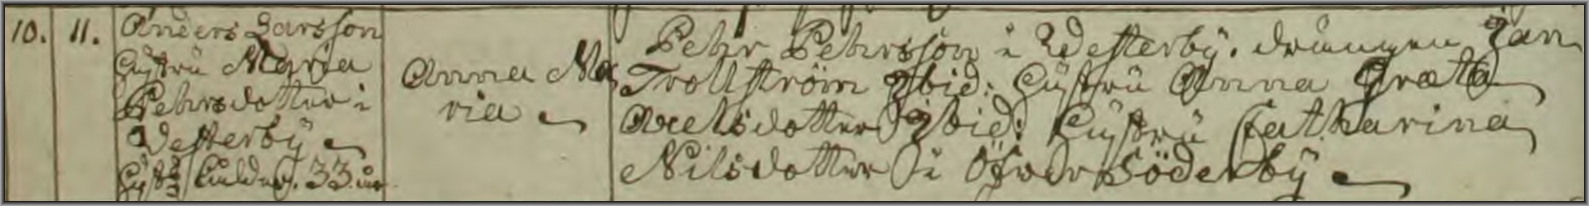 10. 11. Anders Larsson
Hustru Maria
Pehrsdotter i
Westerby
Hustr: ålder. 33. år
Anna Ma
ria
Pehr Pehrsson i Westerby. drängen Jan
Trollström Ibid: Hustru Anna Greta
Axelsdotter Ibid: Hustru Catharina
Nilsdotter i Öfver Söderby